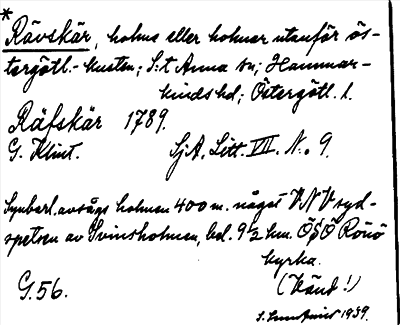 *
Rävskär, holme eller holmar utanför ös-
tergötl.-kusten; S:t Anna sn; Hammar-
kinds hd; Östergötl. l.
Räfskär 1789.
G. Klint. Sj.A. Litt. VIII. N:o 9.
Synbarl. avsågs holmen 400 m. något VNV syd-
spetsen av Svinsholmen, bel. 9 1/2 km. ÖSÖ Rönö
kyrka.
G.56. (Vänd!)
1939.